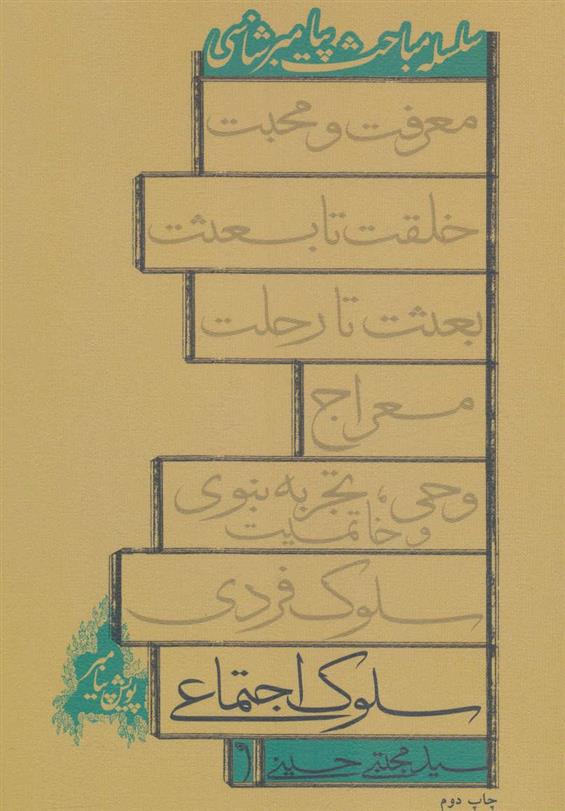 سلسله مباحث پیامبرشناسی
معرفت و محبت
خلقت تا بعثت
بعثت تا رحلت
معراج
وحی، تجربه نبوی
و خاتمیت
سلوک فردی
سلوک اجتماعی
پویش پیامبر
سید مجتبی حسینی
چاپ دوم